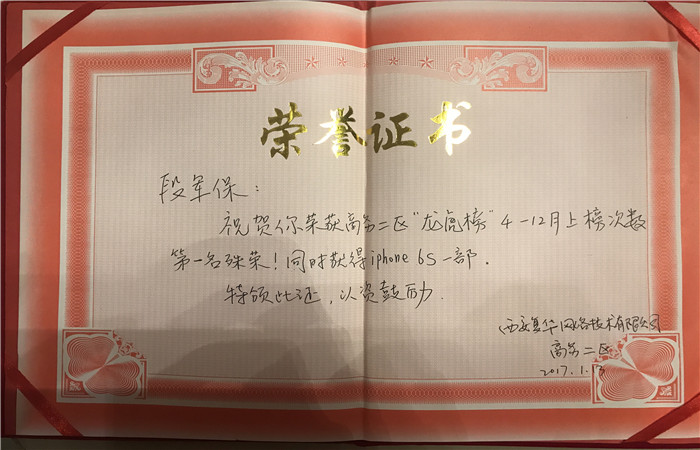 荣誉证书
段军保：
祝贺你荣获商务二区“龙虎榜”4-12月上榜次数
第一名殊荣！同时获得iphone 6S一部.
特颁此证，以资鼓励.
西安复华网络技术有限公司
商务二区
2017.1.13